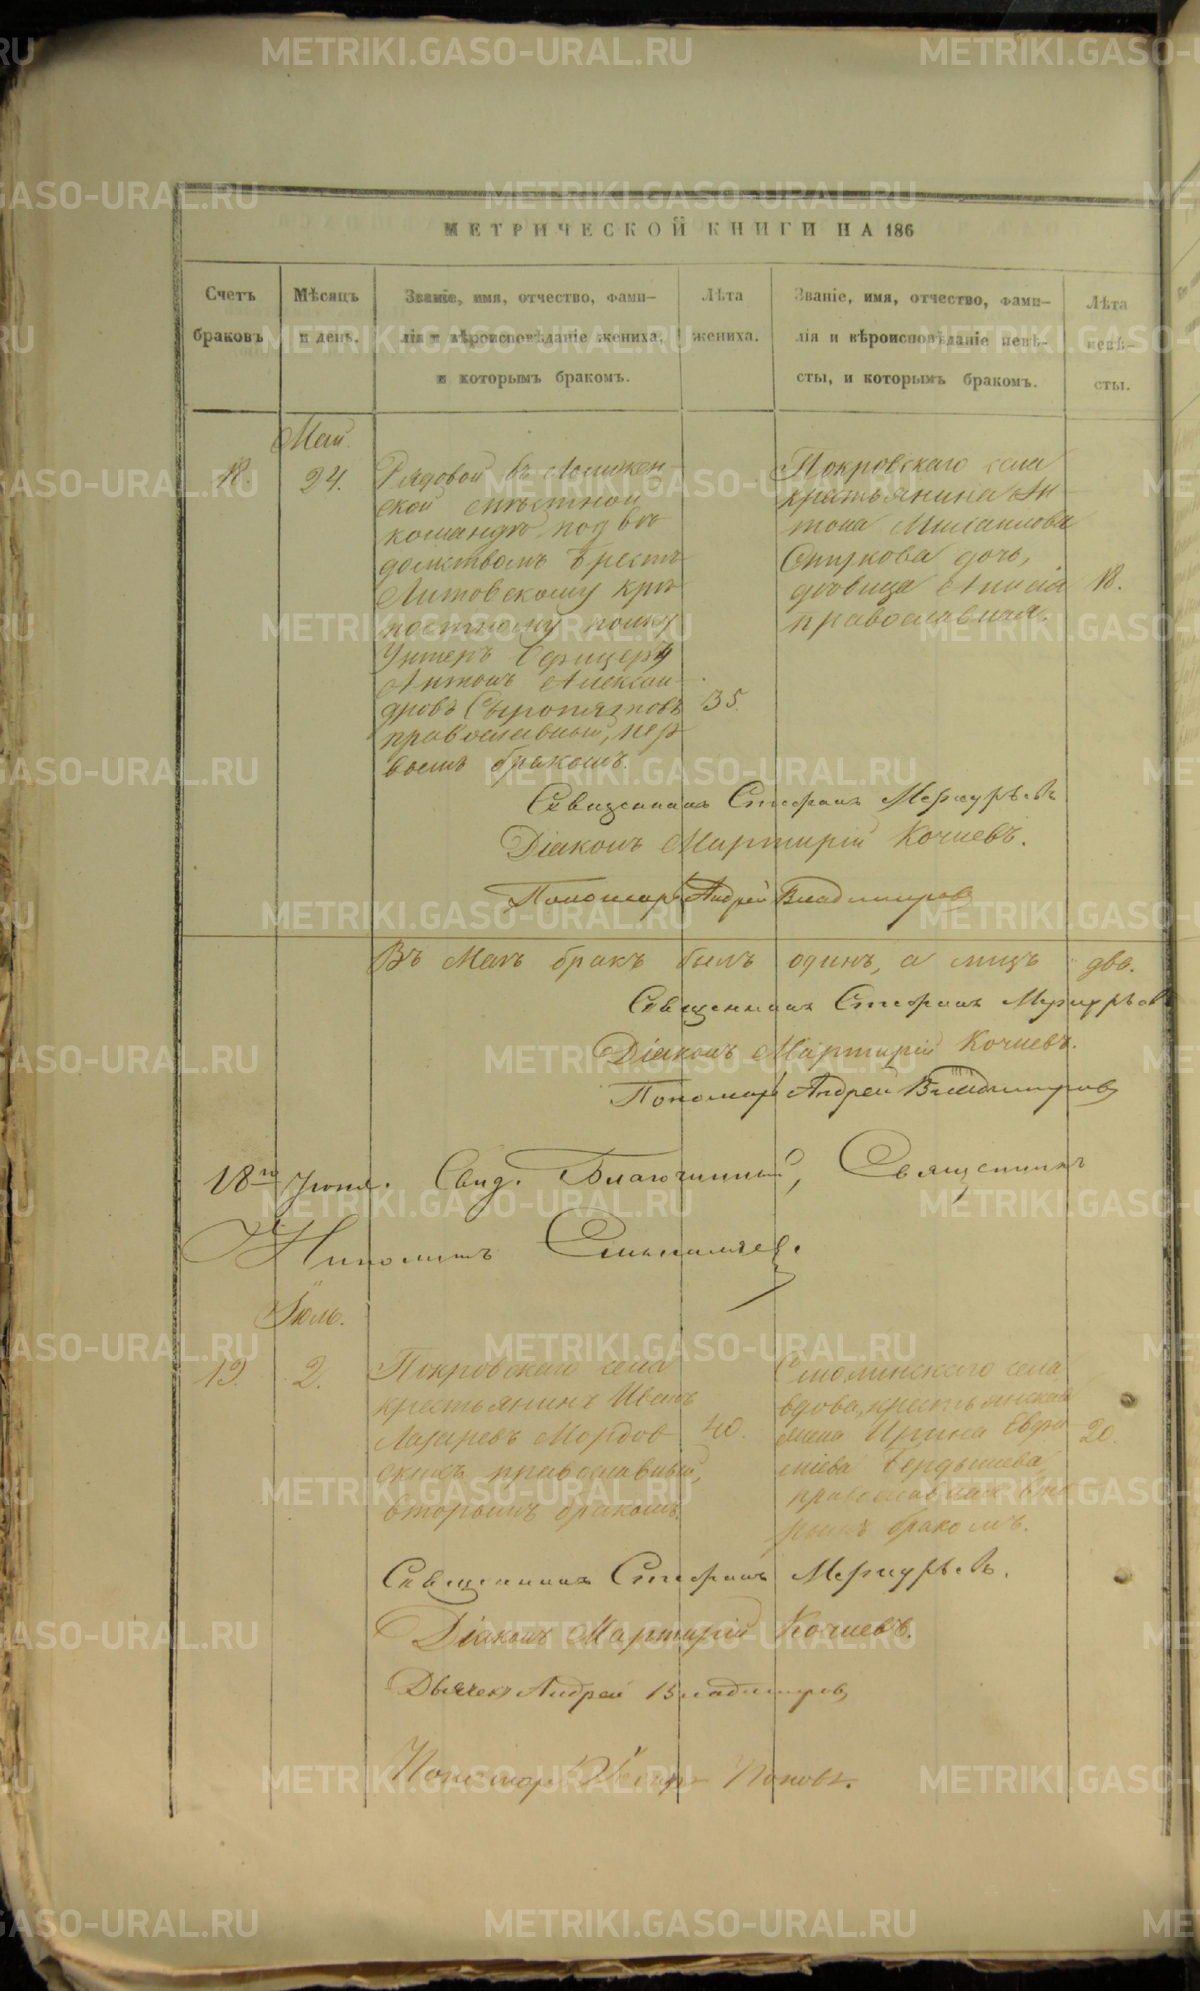 МЕТРИЧЕСКОЙ КНИГИ НА 186
Счетъ браковъ
Мѣсяцъ и день.
Званіе, имя, отчество, фами-
лія и вѣроисповѣданіе жениха,
и которымъ бракомъ.
Лѣта жениха.
Званіе, имя, отчество, фами-
лія и вѣроисповѣданіе невѣ-
сты, и которымъ бракомъ.
Лѣта невѣ-
сты.
Май.
18.
24.
Рядовой въ
ской мѣстной
командѣ, подъ вѣ
домствомъ Брестъ
Литовскому крѣ
постному полку
Унтеръ Офицеръ
Антонъ Алексан
дровъ
православный, пер
вымъ бракомъ.
35.
Покровскаго села
крестьянина Ан
тона Михаилова
дочь,
дѣвица Анисія
православная.
18.
Священникъ Стефанъ Меркурьевъ
Діаконъ Мартирій Кочневъ.
Пономарь Андрей Владимировъ
Въ Маѣ бракъ былъ одинъ, а лицъ два.
Священникъ Стефанъ Меркурьевъ
Діаконъ Мартирій Кочневъ.
Пономарь Андрей Владимировъ
18го Іюня. Свид. Благочинный, Священникъ
Іюль.
19.
2.
Покровскаго села
крестьянинъ Иванъ
Лазаревъ Мордов
скихъ православный,
вторымъ бракомъ.
40.
Смолинскаго села
вдова, крестьянская
жена Ирина Евфи
міева Бердышева,
православная вто
рымъ бракомъ.
20.
Священникъ Стефанъ Меркурьевъ.
Діаконъ Мартирій Кочневъ.
Дьячекъ Андрей Владимировъ
Пономарь Петръ Поповъ.
METRIKI.GASO-URAL.RU